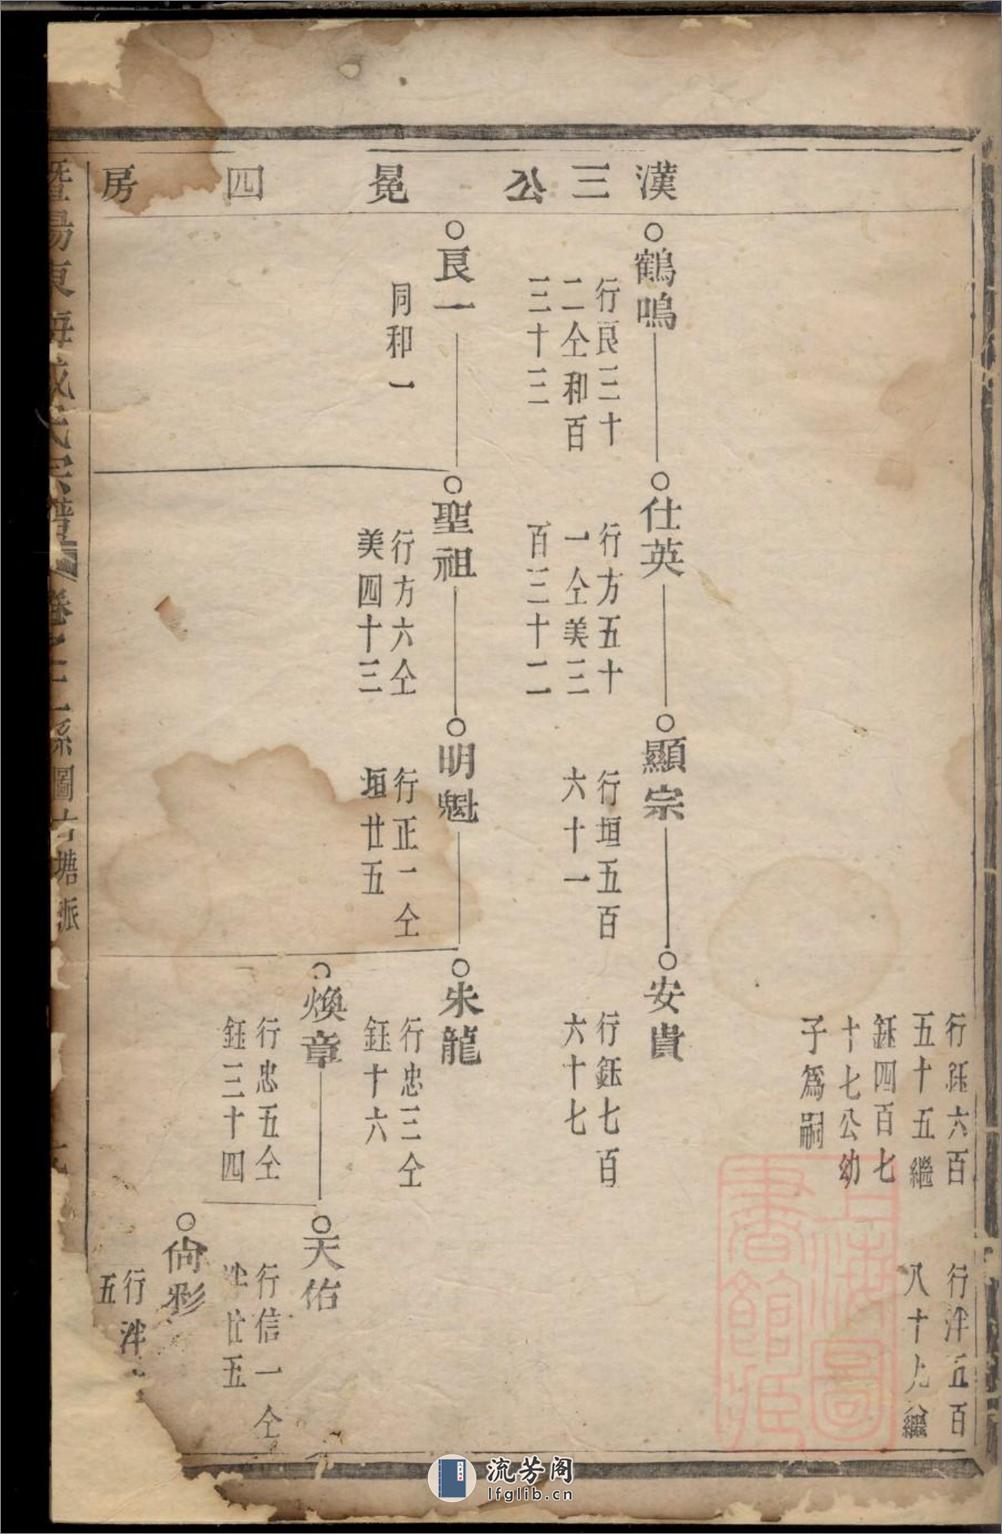 漢三公冕四房
行鈺六百
五十五繼
鈺四百七
十七公幼
子爲嗣
行泮五百
八十九繼
鶴鳴
行良三十
二仝和百
三十三
仕英
行方五十
一仝美三
百三十二
顯宗
行垣五百
六十一
安貴
行鈺七百
六十七
良一
同和一
聖祖
行方六仝
美四十三
明魁
行正一仝
垣廿五
朱龍
行忠三仝
鈺十六
煥章
行忠五仝
鈺三十四
天佑
行信一仝
泮廿五
尙彩
行泮
五
暨陽東海成氏宗譜
卷之
系圖
塘派
上海圖書館藏
流芳阁
lfglib.cn